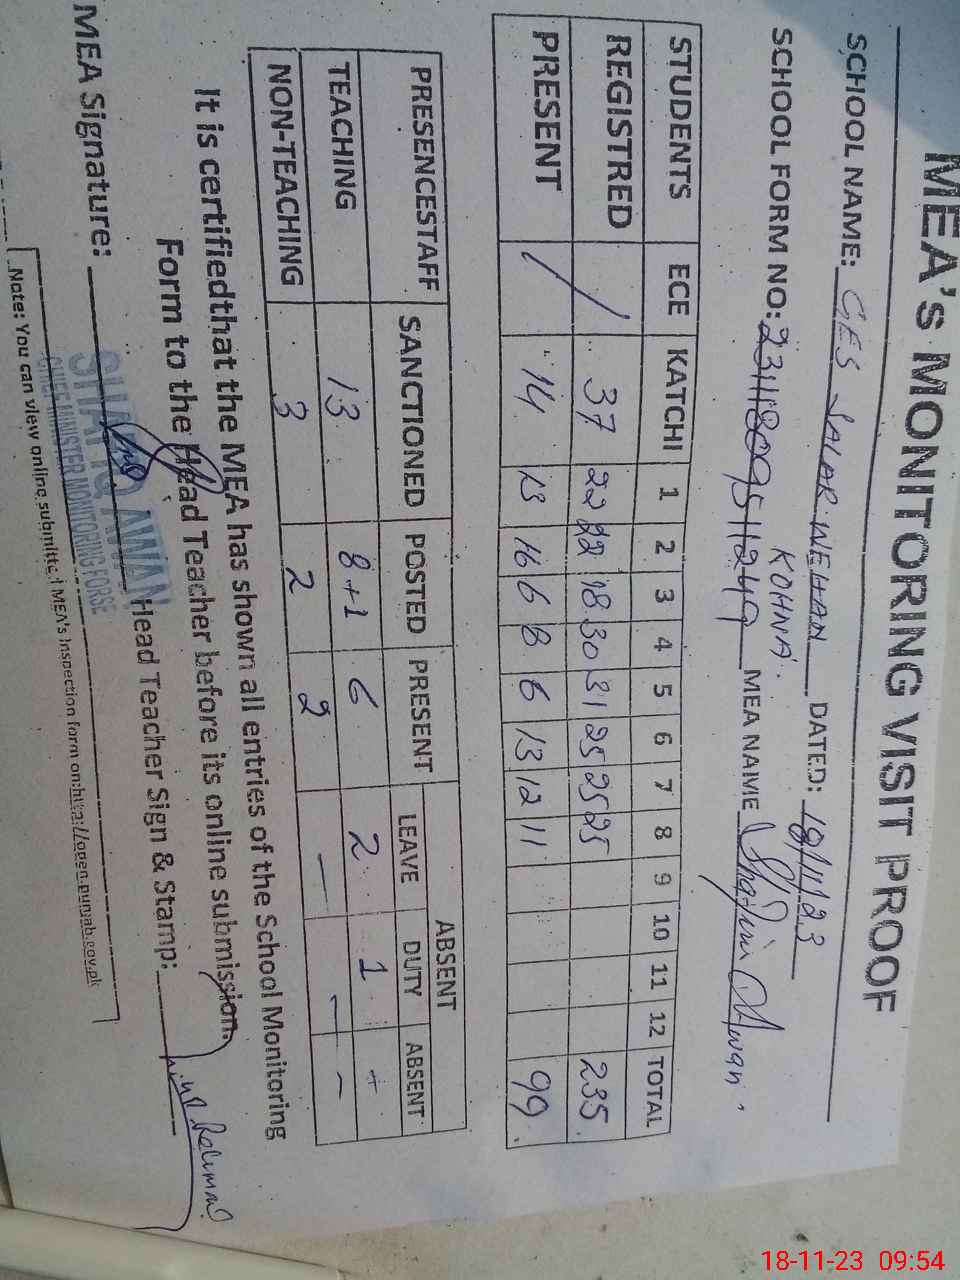 MEA's MONITORING VISIT PROOF
SCHOOL NAME: GES SALAR WEHAN DATED: 18/11/23
KOHNA.
SCHOOL FORM NO: MEA NAME Awan.
STUDENTS ECE KATCHI 1 2 3 4 5 6 7 8 9 10 11 12 TOTAL
REGISTRED / 37 22 22 18 30 31 25 25 25 235
PRESENT / 14 13 16 6 8 6 13 12 11 99
ABSENT
PRESENCESTAFF SANCTIONED POSTED PRESENT LEAVE DUTY ABSENT
TEACHING 13 8+1 6 2 1 +
NON-TEACHING 3 2 2 — — —
It is certifiedthat the MEA has shown all entries of the School Monitoring
Form to the Head Teacher before its online submission.
MEA Signature: Head Teacher Sign & Stamp:
AWAN
CHIEF MINISTER MONITORING FORSE
Note: You can view online submitted MEA's Inspection form on:http://open.punjab.gov.pk
18-11-23 09:54